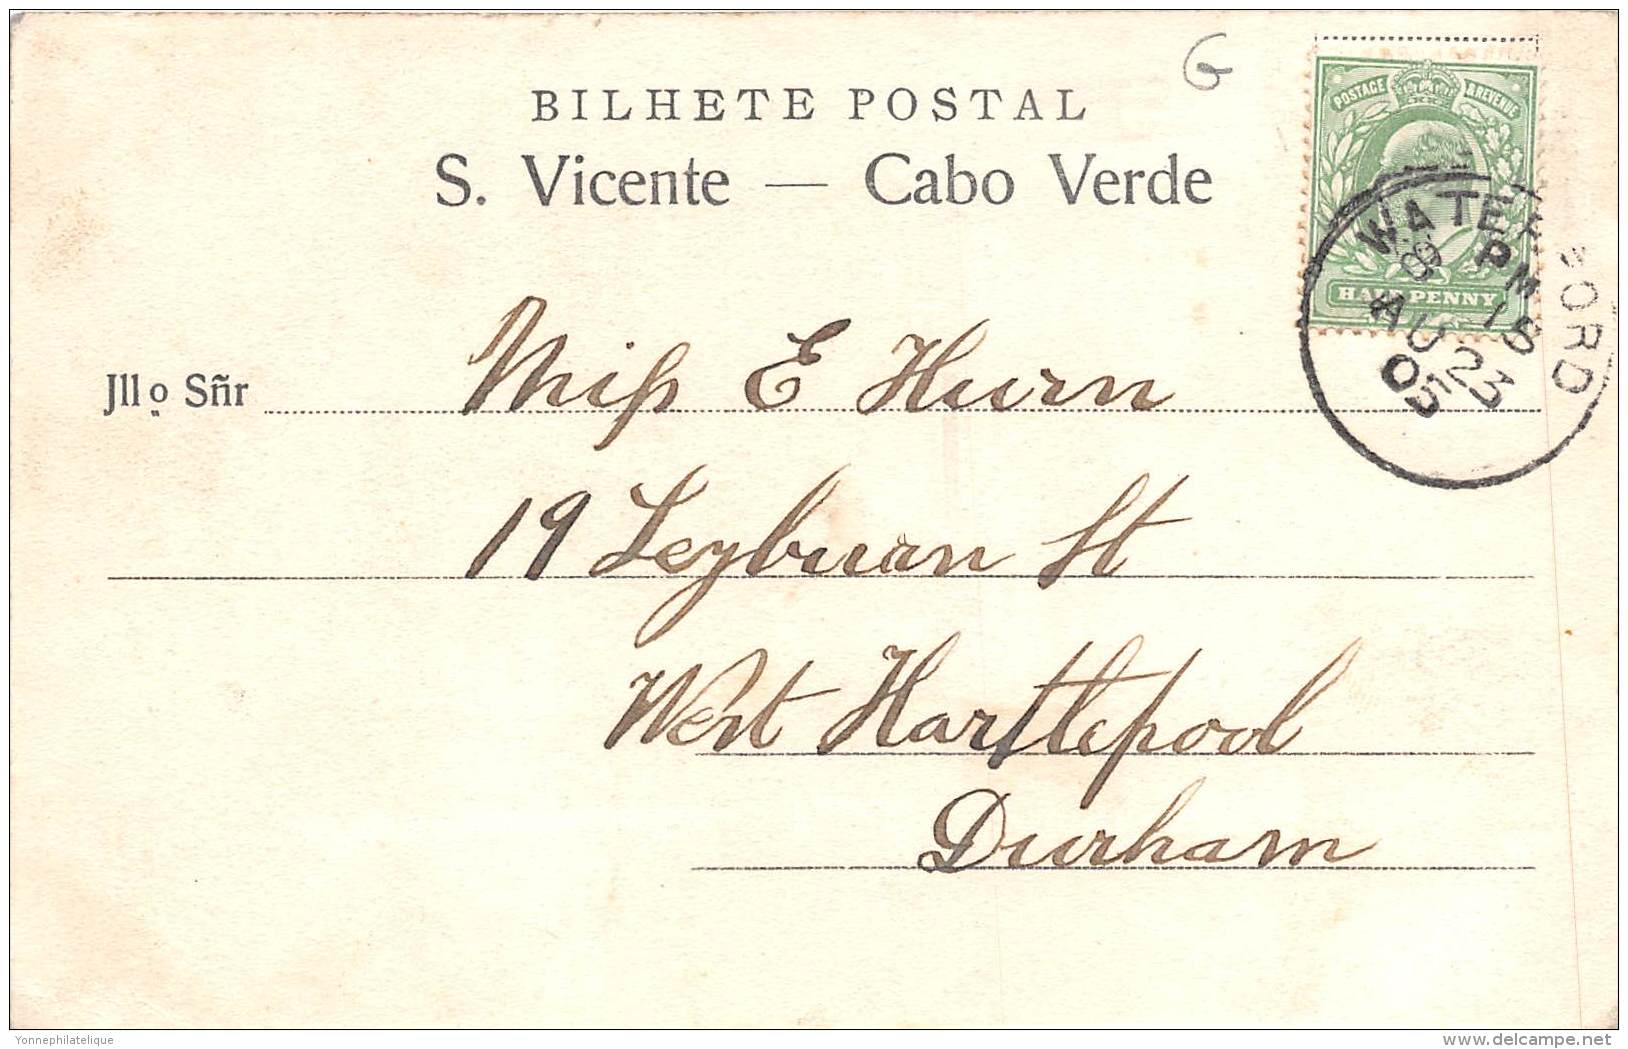 G
BILHETE POSTAL
S. Vicente — Cabo Verde
POSTAGE & REVENUE
HALF PENNY
WATERFORD
PM
AU 23
05
Jllo Sñr Miss E Hurn
19 Leyburn St
West Hartlepool
Durham
Yonnephilatelique
www.delcampe.net